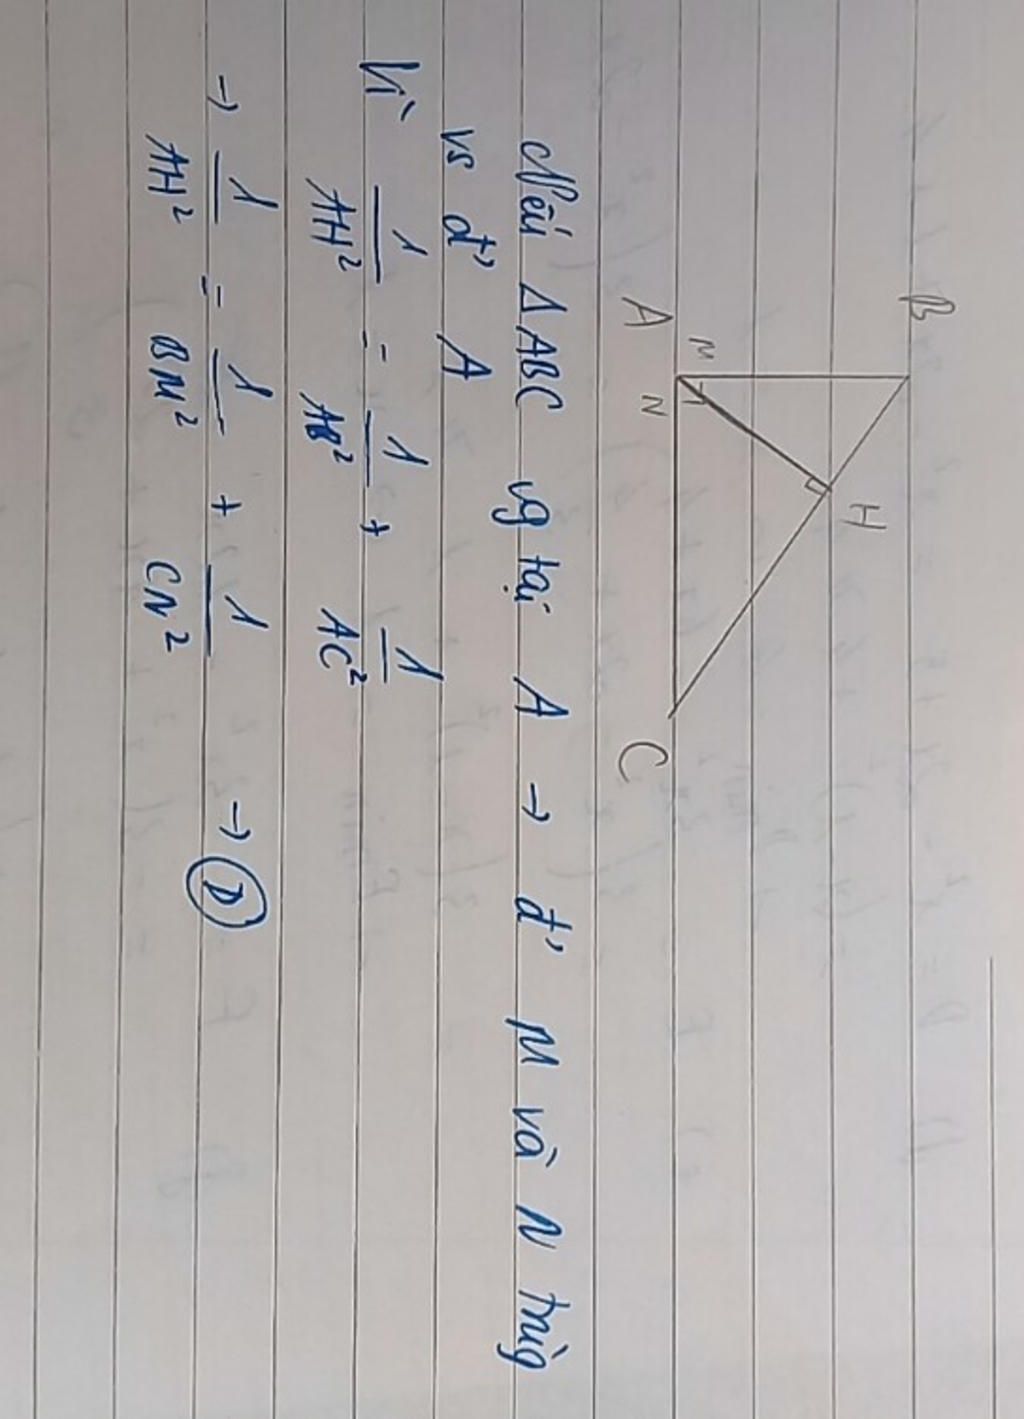 B
H
M
A N C
Nếu ΔABC vg tại A → đ' M và N trùg
vs đ' A
Vì 1/AH² = 1/AB² + 1/AC²
→ 1/AH² = 1/BM² + 1/CN² → D